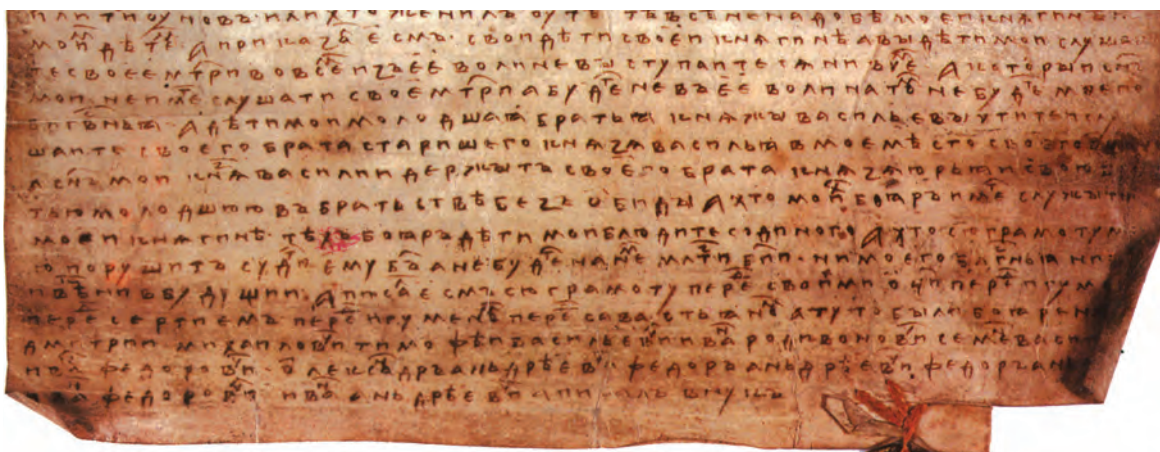 или тиуновъ или хто женилъ оу тѣ тѣ всѣ не надобѣ моеи кнѧгинѣ
мои дѣте · а приказа есмь · свои дѣти своеи кнѧгинѣ а вы дѣти мои слуша
те своее мтри во всѣ изъ ее воли не выступаитесѧ ни в че а которыи снъ
мои не име слушати своее мтри а буде не въ ее воли на то не буде моего
блгвньꙗ · а дѣти мои молодшаꙗ братьꙗ кнѧжы васильевы чтите и слу
шаите своего брата старишего кнѧзѧ васильꙗ в мое мѣсто своего
а снъ мои кнѧ василии держыть своего брата кнѧзѧ юрьꙗ и свою
тью молодшюю въ братьствѣ безъ обиды а хто мои боꙗръ име служыти
моеи кнѧгинѣ · тѣхъ боꙗръ дѣти мои блюдите с одиного а хто сю грамоту
ю порушить суди ему бъ а не буде на не млти бии · ни моего блгвньꙗ ни
в вѣ ни в будущии · а писа есмь сю грамоту пере своими оци пере игум
пере сергиемъ пере игумено пере савастьꙗно а туто были боꙗре
дмитрии михаилови тимофѣи васильеви ива родивонови семе васи
ива федорови · олександръ аньдрѣеви · федоръ аньдрѣеви федоръ ан
ива федорови ива аньдрѣеви а писалъ внукъ